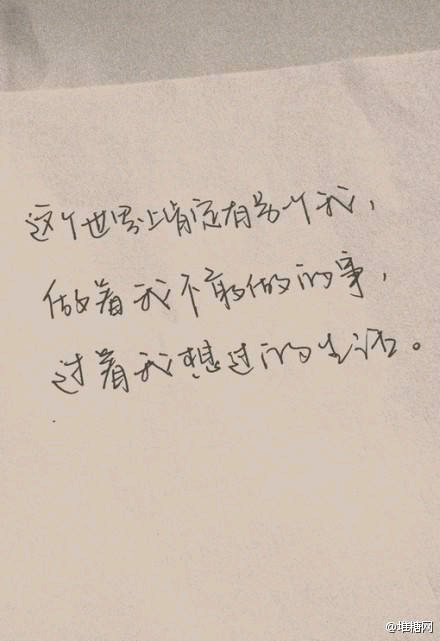 这个世界上肯定有另一个我，
做着我不敢做的事，
过着我想过的生活。
@堆糖网